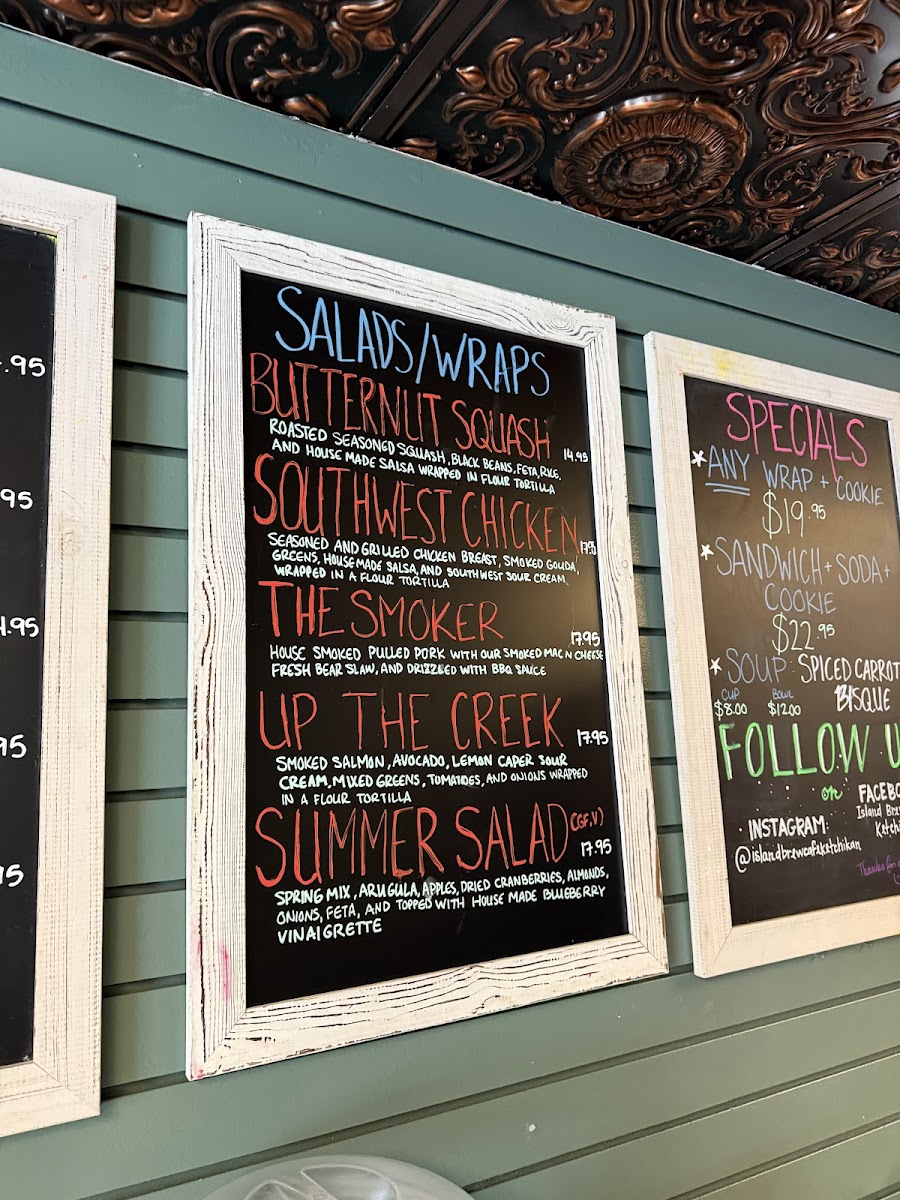 .95
.95
4.95
95
15
SALADS/WRAPS
BUTTERNUT SQUASH 14.95
ROASTED SEASONED SQUASH, BLACK BEANS, FETA, RICE,
AND HOUSE MADE SALSA WRAPPED IN FLOUR TORTILLA
SOUTHWEST CHICKEN 17.95
SEASONED AND GRILLED CHICKEN BREAST, SMOKED GOUDA,
GREENS, HOUSE MADE SALSA, AND SOUTHWEST SOUR CREAM,
WRAPPED IN A FLOUR TORTILLA
THE SMOKER 17.95
HOUSE SMOKED PULLED PORK WITH OUR SMOKED MAC N CHEESE
FRESH BEAR SLAW, AND DRIZZLED WITH BBQ SAUCE
UP THE CREEK 17.95
SMOKED SALMON, AVOCADO, LEMON CAPER SOUR
CREAM, MIXED GREENS, TOMATOES, AND ONIONS WRAPPED
IN A FLOUR TORTILLA
SUMMER SALAD (GF,V) 17.95
SPRING MIX, ARUGULA, APPLES, DRIED CRANBERRIES, ALMONDS,
ONIONS, FETA, AND TOPPED WITH HOUSE MADE BLUEBERRY
VINAIGRETTE
SPECIALS
ANY WRAP + COOKIE
$19.95
SANDWICH + SODA +
COOKIE
$22.95
SOUP: SPICED CARROT
BISQUE
CUP BOWL
$8.00 $12.00
FOLLOW U
on
INSTAGRAM:
@islandbrewcafeketchikan
FACEBO
Island Bre
Ketchi
Thanks for